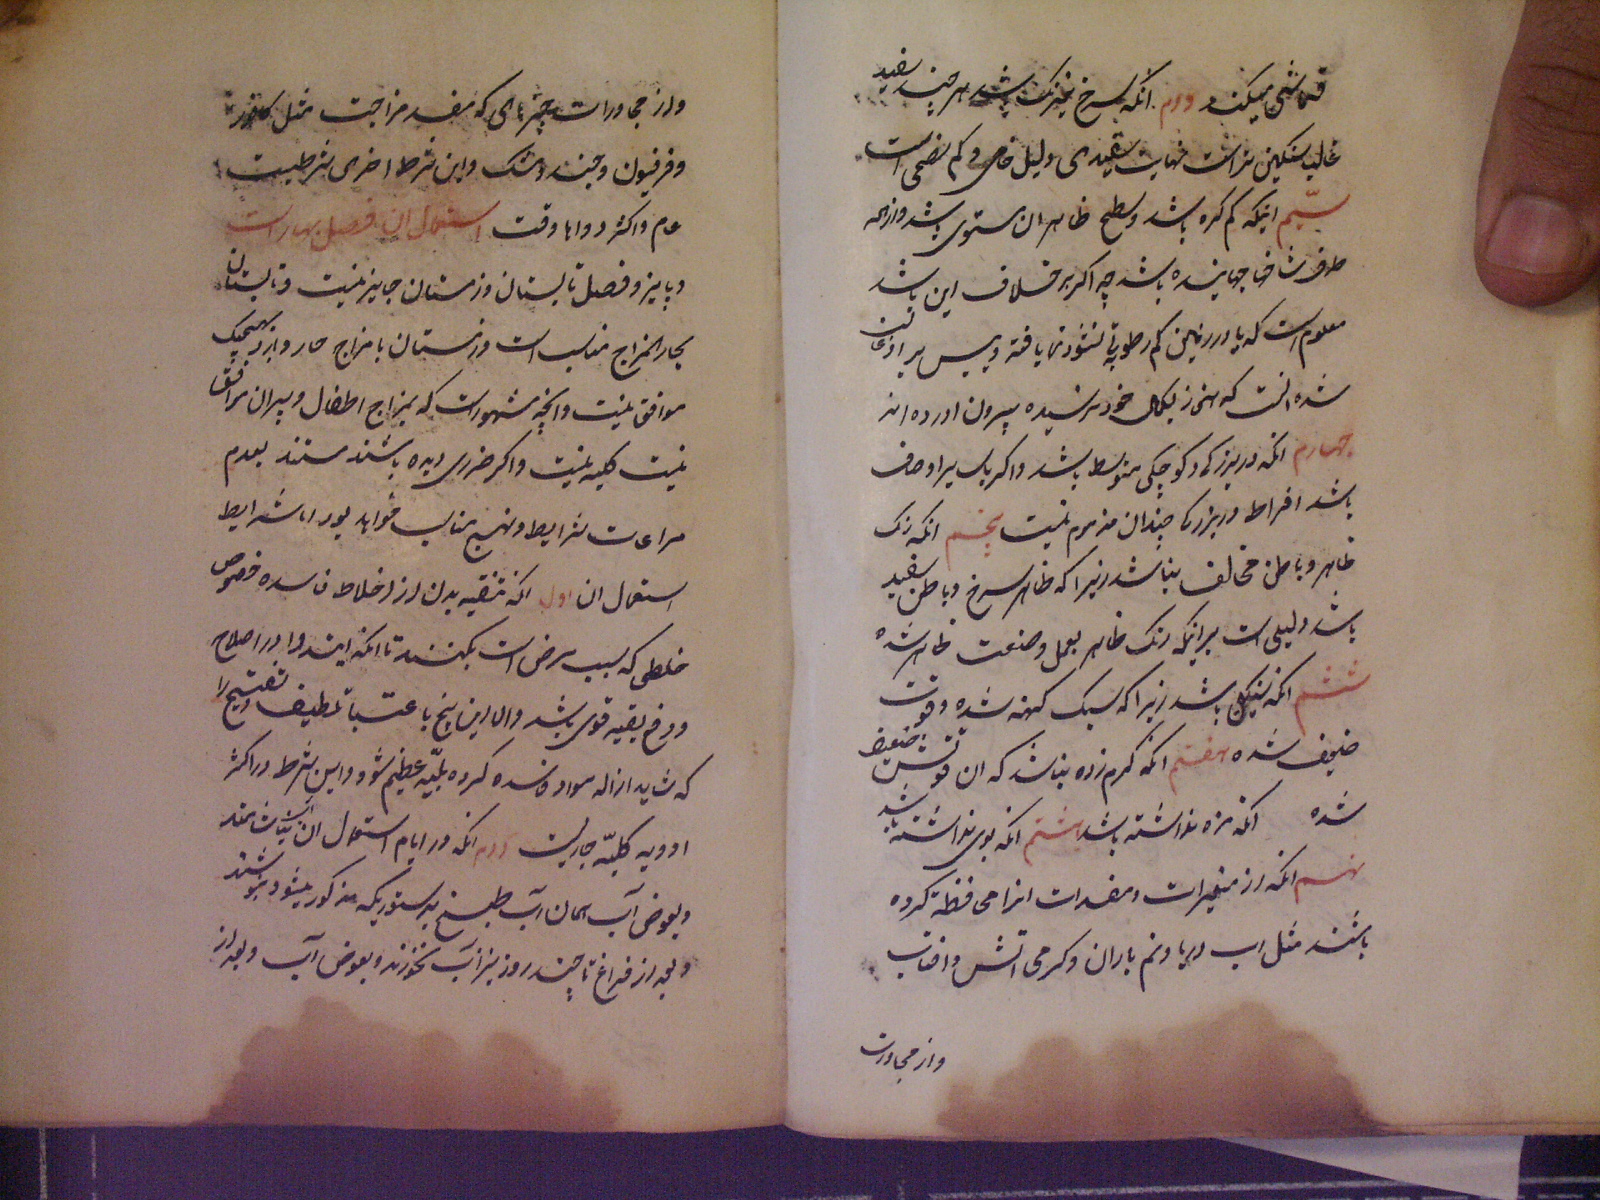 میکند دوم انکه سرخ نیمرنک باشد هر چند سفید
غالب سنکین تر است نهایت سفیدی دلیل خامی و کم نضجی است
سیّم انکه کم کره باشد و سطح ظاهر ان مستوی باشد و از همه
طرف جهانیده باشد چه اکر بر خلاف این باشد
معلومست که یا در زمین کم رطوبة نشو و نما یافته و پیش از
شده انست که هنوز بکمال خود نرسیده بیرون اورده اند
چهارم انکه در بزرکی و کوچکی متوسط باشد و اکر با سایر اوصاف
باشد افراط در بزرکی چندان مذموم نیست پنجم انکه رنک
ظاهر و باطن مخالف نباشد زیرا که ظاهر سرخ و باطن سفید
باشد دلیل است بر اینکه رنک ظاهر بعمل و صنعت ظاهر شده
ششم انکه سنکین باشد زیرا که سبک کهنه شده و قوت
ضعیف شده هفتم انکه کرم زده نباشد که ان قوتش ضعیف
شده انکه مزه نداشته باشد هشتم انکه بوی نداشته باشد
نهم انکه از مغیرات و مفسدات انرا محافظة کرده
باشند مثل اب دریا و نم باران و کرمی اتش و افتاب
و از مجاورت
و از مجاورات چیزهای که مفسد مزاجت مثل کافور
و فرفیون و جند و مشک و این شرط اخری شرطیست
عام و اکثر دواها وقت استعمال ان فصل بهار است
و پاییز و فصل تابستان و زمستان جایز نیست و تابستان
بحار المزاج مناسب است و زمستان با مزاج حار و بارد بهیچیک
موافق نیست و انچه مشهور است که بمزاج اطفال و پیران موافق
نیست کلیه نیست و اکر ضرری دیده باشند مستند بعدم
مراعات شرایط و نهج مناسب خواهد بود اما شرایط
استعمال ان اول انکه تنقیه بدن از اخلاط فاسده خصوص
خلطی که سبب مرض است بکنند تا انکه این دوا در اصلاح
و دفع بقیه قوی باشد و الا این بیخ باعتبار تلطیف و تفتیح را
که شاید ازاله مواد فاسده کرده بلیّه عظیم شود و این شرط در اکثر
ادویه کلیّه جاریست دوم انکه در ایام استعمال ان
و بعوض آب همان آب طبیخ بدستوریکه مذکور میشود بنوشند
و بعد از فراغ تا چند روز نیز آب نخورند و بعوض آب و بعد از